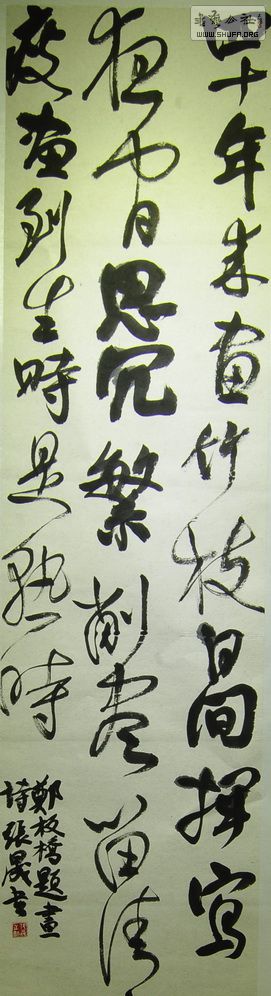 書法公社
WWW.SHUFA.ORG
四十年来画竹枝日间揮寫
夜间思冗繁削尽留清
瘦画到生時是熟時
鄭板橋題畫
诗張晟书